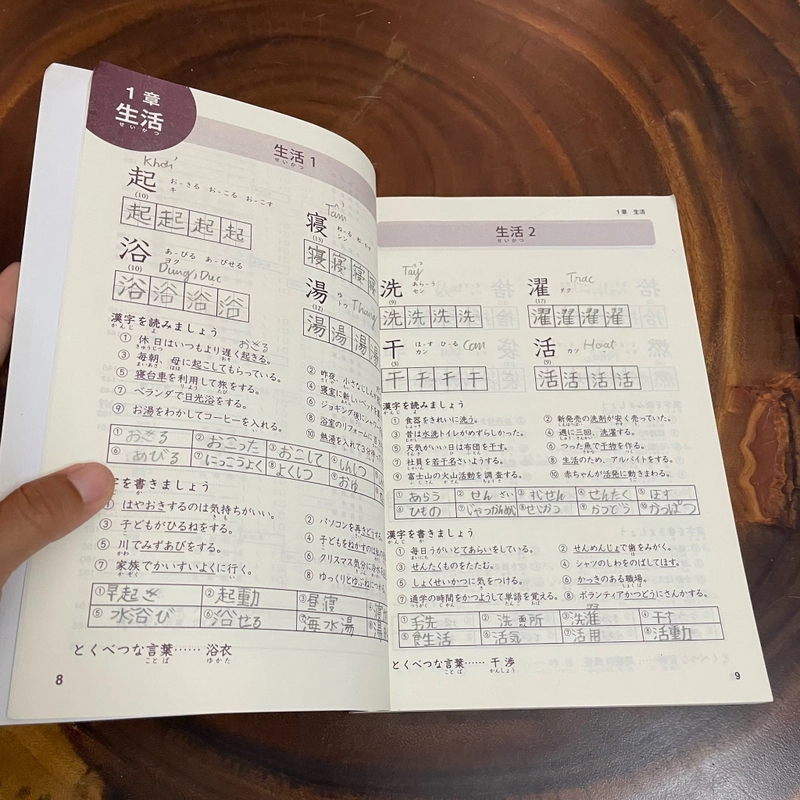 1章
生活
せいかつ
生活 1
せいかつ
Khởi
起
(10)
お-きる お-こる お-こす
キ
起 起 起 起
浴
(10)
あ-びる あ-びせる
ヨク
Dung, Dục
浴 浴 浴 浴
Tẩm
寝
(13)
ね-る ね-かす
シン
寝 寝 寝
湯
(12)
ゆ
トウ
Thang
湯 湯 湯
漢字を読みましょう
おきる
① 休日はいつもより遅く起きる。
③ 毎朝、母に起こしてもらっている。
⑤ 寝台車を利用して旅をする。
⑦ ベランダで日光浴をする。
⑨ お湯をわかしてコーヒーを入れる。
② 昨夜、小さなじしんが
④ 寝室に新しいベッドを
⑥ ジョギング後にシャワー
⑧ 浴室のリフォームに
⑩ 熱湯を入れて3分
① おきる ② おこった ③ おこして ④ しんしつ
⑥ あびる ⑦ にっこうよく ⑧ よくしつ ⑨ おゆ
漢字を書きましょう
① はやおきするのは気持ちがいい。
③ 子どもがひるねをする。
⑤ 川でみずあびをする。
⑦ 家族でかいすいよくに行く。
② パソコンを再きどう
④ 子どもをねかすのは私の
⑥ クリスマス気分に
⑧ ゆっくりとゆぶねに
① 早起き ② 起動 ③ 昼寝 ④
⑤ 水浴び ⑥ 浴せる ⑦ 海水湯 ⑧
とくべつな言葉……浴衣
ことば ゆかた
8
1章 生活
生活 2
せいかつ
洗
(9)
あら-う
セン
Tẩy
洗 洗 洗 洗
濯
(17)
タク
Trạc
濯 濯 濯 濯
干
(3)
ほ-す ひ-る
カン
Can
干 干 干 干
活
(9)
カツ
Hoạt
活 活 活 活
漢字を読みましょう
① 食器をきれいに洗う。
③ 昔は水洗トイレがめずらしかった。
⑤ 天気がいい日は布団を干す。
⑦ 社員を若干名さいようする。
⑨ 富士山の火山活動を調査する。
② 新発売の洗剤が安く売っていた。
④ 週に三回、洗濯する。
⑥ つった魚で干物を作る。
⑧ 生活のため、アルバイトをする。
⑩ 赤ちゃんが活発に動きまわる。
① あらう ② せんざい ③ すいせん ④ せんたく ⑤ ほす
⑥ ひもの ⑦ じゃっかんめい ⑧ せいかつ ⑨ かつどう ⑩ かっぱつ
漢字を書きましょう
① 毎日うがいとてあらいをしている。
③ せんたくものをたたむ。
⑤ しょくせいかつに気をつける。
⑦ 通学の時間をかつようして単語を覚える。
② せんめんじょで歯をみがく。
④ シャツのしわをのばしてほす。
⑥ かっきのある職場。
⑧ ボランティアかつどうにさんかする。
① 手洗 ② 洗面所 ③ 洗濯 ④ 干す
⑤ 食生活 ⑥ 活気 ⑦ 活用 ⑧ 活動
とくべつな言葉……干渉
ことば かんしょう
9